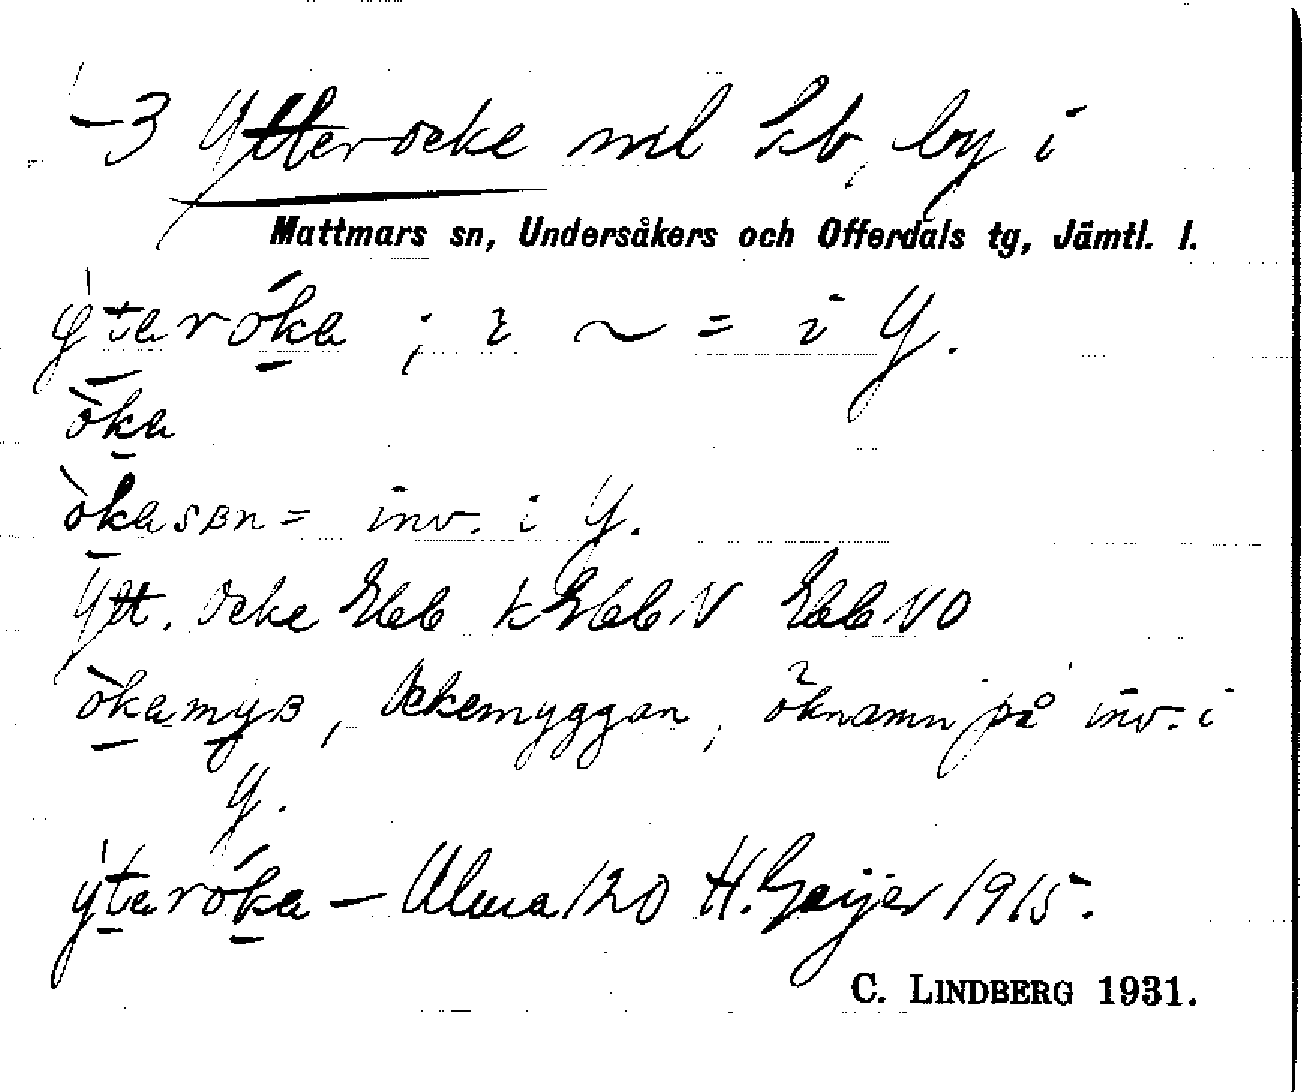 -3 Ytterocke nel Lb, by i
Mattmars sn, Undersåkers och Offerdals tg, Jämtl. l.
ýteróka ; i ~ = i Y.
òka
òkasʙn = inv. i Y.
Ytt. Ocke Ebb k Ebb N Ebb NO
òkamyʙ, Ockemyggan, öknamn på inv. i
Y.
ýteróka — Ulma 120 H. Geijer 1915.
C. LINDBERG 1931.